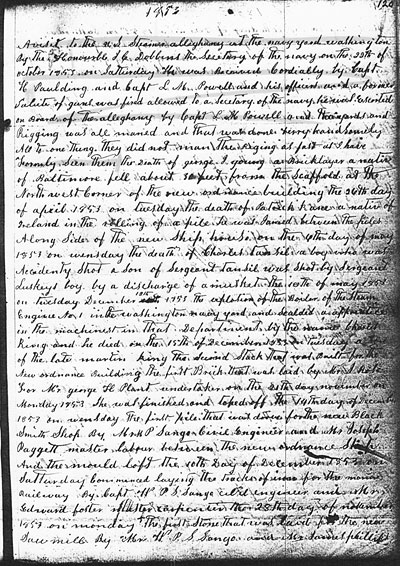 1853
120
A visit to the U.S. Steamer alleghany at the navy yard washington
By the Honorable J. C. Dobbins the Secetary of the navy on the 22th of
october 1853 on Saturday He was Received Cordially by Capt
H Paulding and Capt L M. Powell and his officers and a
Salute of guns was find allowed to a Secetary of the navy he was Escorted
on Board of the alleghany by Capt L M Powell and the yards and
Rigging was all maned and that was done very handsomely
All to one thing they did not man the Riging as fast as I have
formly Seen them the death of george J. young a Bricklayer a native
of Baltimore fell about 50 feet from the Scaffold at the
North west Corner of the new ordnance building the 26th day
of april 1853 on tuesday the death of Patrick Kane a native of
Ireland in the of a pile he was Jamed between the piles
Along Side of the new Ship house on the 4th day of may
1853 on wensday the death of Charles tansil a boy who was
Accidently Shot a Son of Sergeant tansil was Shot by Sergeand
Luskeys boy by a discharge of a musket the 10th of may 1853
on tuesday December 13th 1853 the explotion of the Boiler of the Steam
Engine No. 1 in the washington navy yard and Scalded a apprentice
in the machinest in that Department by the name Charles
King and he died on the 15th of December 1853 a
of the late martin King the Second Stack that was Built for the
New ordnance Building the first Brick that was laid by Mr
For Mr george H Plant undertaker on the 21th day november on
Monday 1853 She was finished and toped off the 14th day of December
1853 on wensday the first pile that was drove for the new Black
Smith Shop By Mr W P S Sanger Civil Engineer and Mr Joseph
Paggett master Labour between the new ordnance Shop
And the mould Loft the 10th Day of December 1853
Satturday Commenced laying the tracks of iron for the marine
Railway By Capt W P S Sanger Civil engineer and Mr
Edward foster master carpenter the 28th day of november
1853 on monday the first Stone that was Laid for the new
Saw mill By Mr W P S Sanger and Mr Samuel phillips